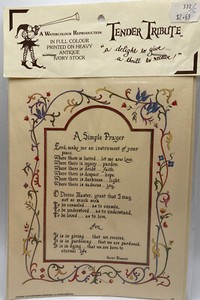 A Watercolour Reproduction
IN FULL COLOUR
PRINTED ON HEAVY
ANTIQUE
IVORY STOCK
TENDER TRIBUTE
"a delight to give
a thrill to receive"
A Simple Prayer
Lord, make me an instrument of your
peace.
Where there is hatred.. let me sow love.
Where there is injury.. pardon.
Where there is doubt.. faith.
Where there is despair.. hope.
Where there is darkness.. light.
Where there is sadness.. joy.
O Divine Master, grant that I may
not so much seek
To be consoled...as to console,
To be understood...as to understand,
To be loved...as to love,
for
It is in giving ...that we receive,
It is in pardoning, that we are pardoned,
It is in dying ...that we are born to
eternal life.
Saint Francis